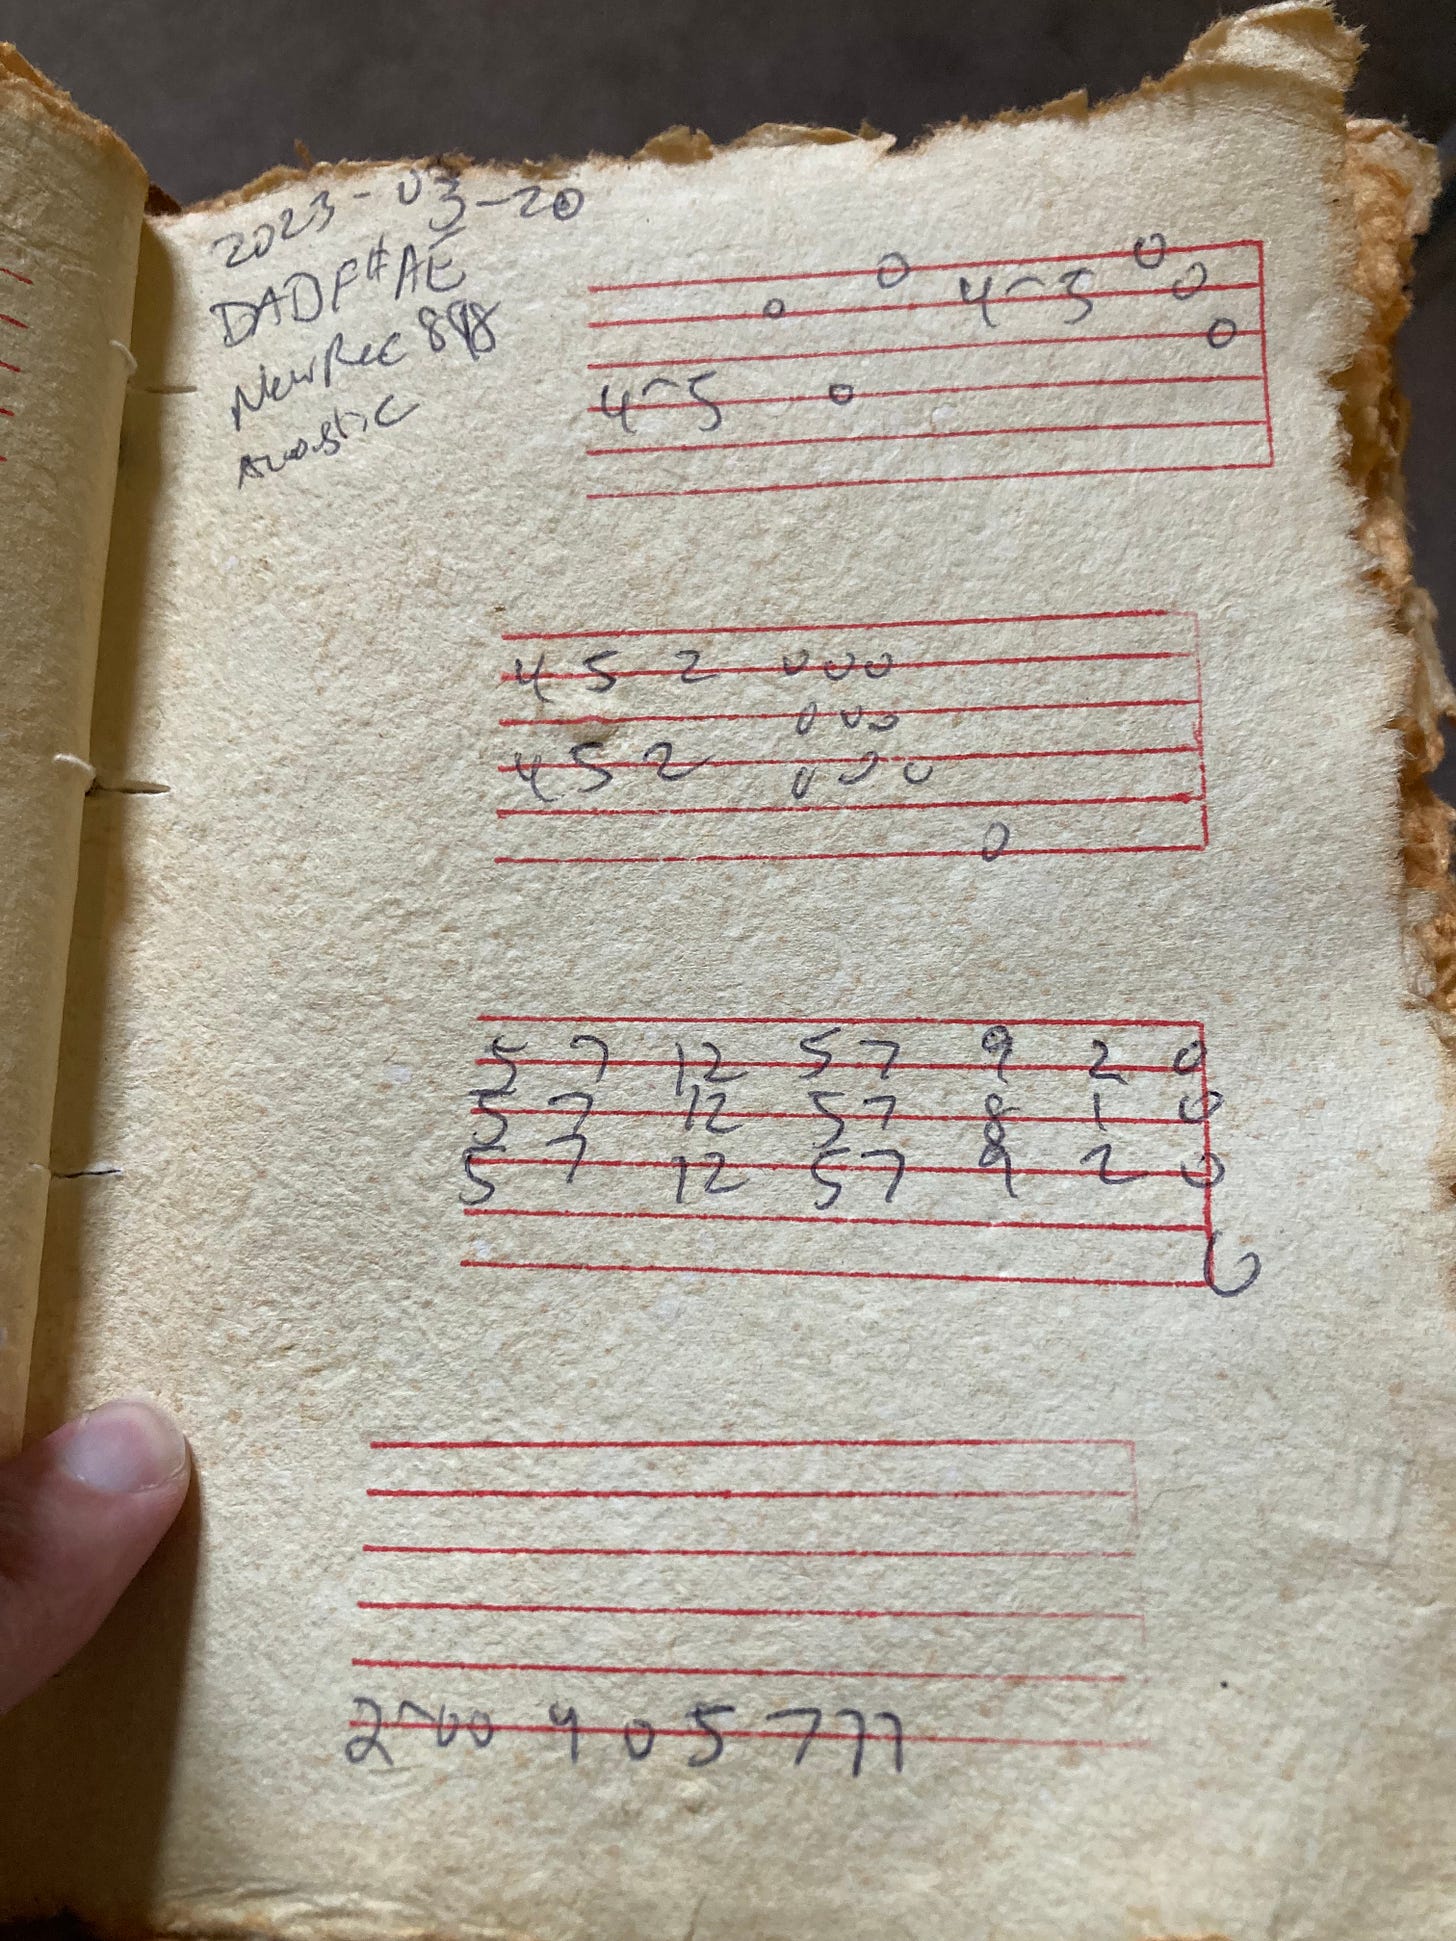 2023-03-20
DADF#AE
New Rec 898
Acoustic
0 0 4⌒5 0 0
0
4⌒5 0
4 5 2 0 0 0
0 0 0
4 5 2 0 0 0
0
5 7 12 5 7 9 2 0
5 7 12 5 7 8 1 0
5 7 12 5 7 9 2 0
0
2⌒00 9 0 5 7 7 7